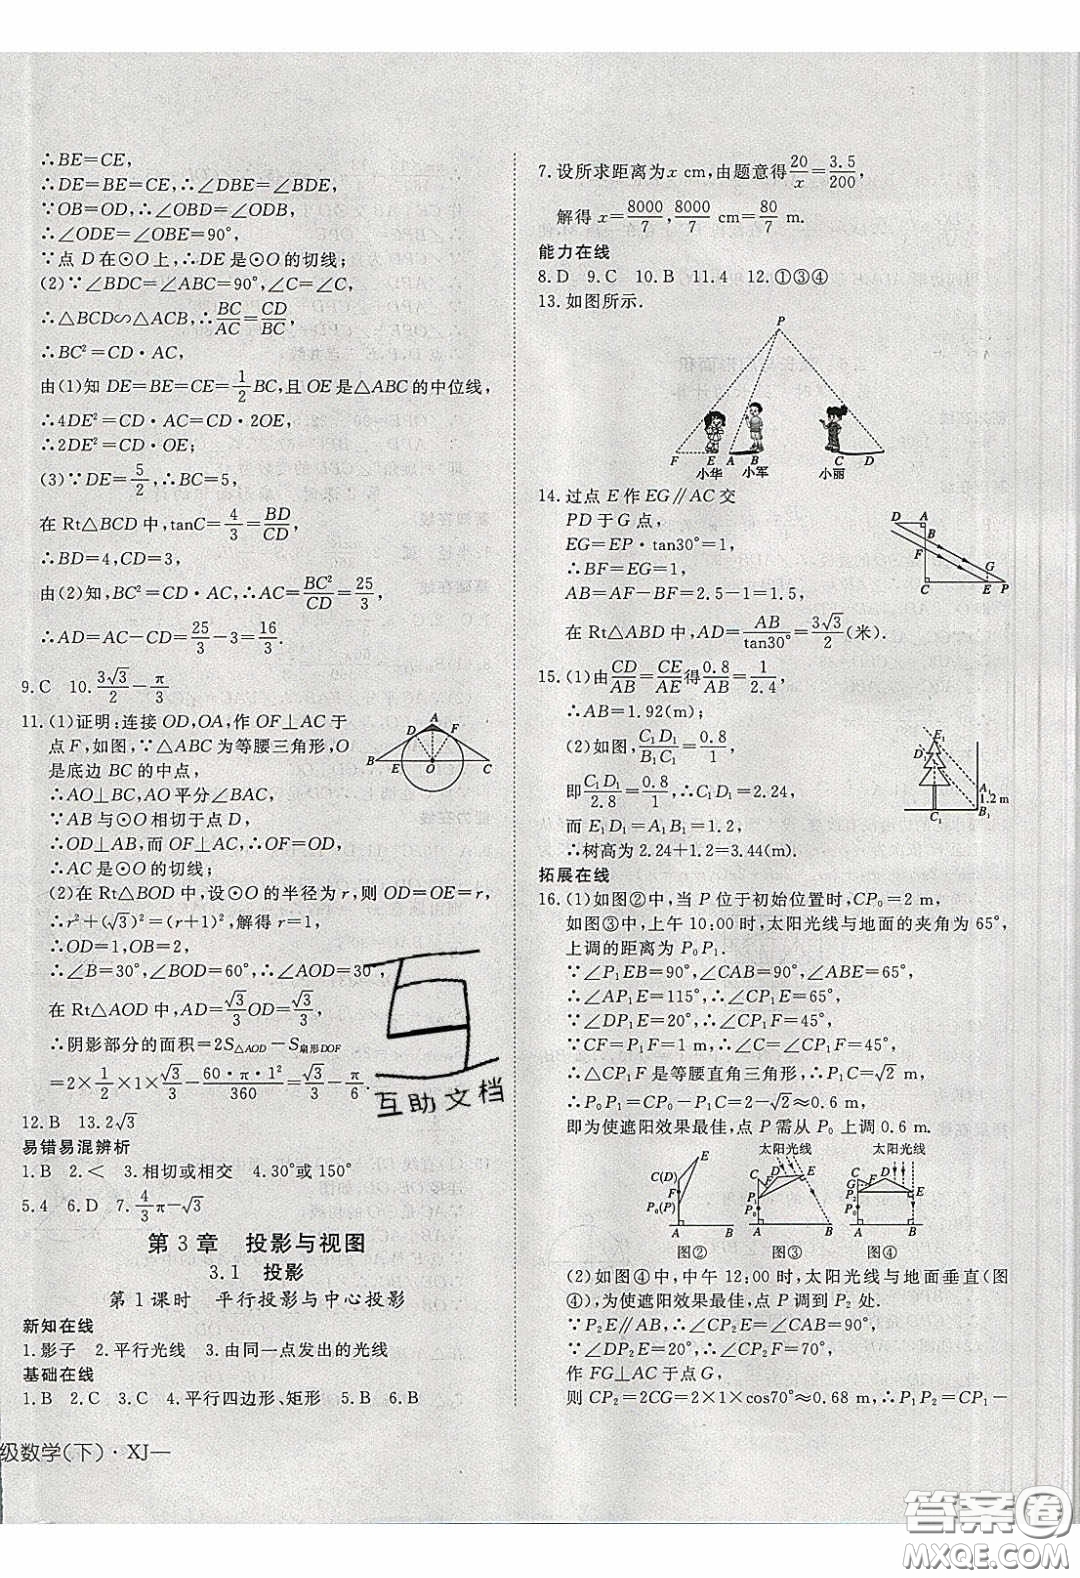 ∴BE=CE,
∴DE=BE=CE,∴∠DBE=∠BDE,
∵OB=OD,∴∠OBD=∠ODB,
∴∠ODE=∠OBE=90°,
∵点 D 在⊙O 上,∴DE 是⊙O 的切线;
(2)∵∠BDC=∠ABC=90°,∠C=∠C,
∴△BCD∽△ACB,∴BC/AC=CD/BC,
∴BC²=CD·AC,
由(1)知 DE=BE=CE=1/2BC,且 OE 是△ABC 的中位线,
∴4DE²=CD·AC=CD·2OE,
∴2DE²=CD·OE;
(3)∵DE=5/2,∴BC=5,
在 Rt△BCD 中,tanC=4/3=BD/CD,
∴BD=4,CD=3,
由(2)知,BC²=CD·AC,∴AC=BC²/CD=25/3,
∴AD=AC−CD=25/3−3=16/3.
9.C 10.3√3/2−π/3
11.(1)证明:连接 OD,OA,作 OF⊥AC 于
点 F,如图,∵△ABC 为等腰三角形,O
是底边 BC 的中点,
∴AO⊥BC,AO 平分∠BAC,
∵AB 与⊙O 相切于点 D,
∴OD⊥AB,而 OF⊥AC,∴OF=OD,
∴AC 是⊙O 的切线;
(2)在 Rt△BOD 中,设⊙O 的半径为 r,则 OD=OE=r,
∴r²+(√3)²=(r+1)²,解得 r=1,
∴OD=1,OB=2,
∴∠B=30°,∠BOD=60°,∴∠AOD=30°,
在 Rt△AOD 中,AD=√3/3OD=√3/3,
∴阴影部分的面积=2S△AOD−S扇形DOF
=2×1/2×1×√3/3−60·π·1²/360=√3/3−π/6.
12.B 13.2√3
易错易混辨析
1.B 2.< 3.相切或相交 4.30°或 150°
5.4 6.D 7.4/3π−√3
第 3 章 投影与视图
3.1 投影
第 1 课时 平行投影与中心投影
新知在线
1.影子 2.平行光线 3.由同一点发出的光线
基础在线
1.B 2.C 3.C 4.平行四边形、矩形 5.B 6.B
级数学(下)·XJ—
A
D F
B E O C
互助文档
7.设所求距离为 x cm,由题意得20/x=3.5/200,
解得 x=8000/7,8000/7 cm=80/7 m.
能力在线
8.D 9.C 10.B 11.4 12.①③④
13.如图所示.
P
F E A B C D
小华 小军 小丽
14.过点 E 作 EG∥AC 交
PD 于 G 点,
EG=EP·tan30°=1,
∴BF=EG=1,
AB=AF−BF=2.5−1=1.5,
在 Rt△ABD 中,AD=AB/tan30°=3√3/2(米).
D A
F
G
C E P
15.(1)由CD/AB=CE/AE得0.8/AB=1/2.4,
∴AB=1.92(m);
(2)如图,C₁D₁/B₁C₁=0.8/1,
即C₁D₁/2.8=0.8/1,∴C₁D₁=2.24,
而 E₁D₁=A₁B₁=1.2,
∴树高为 2.24+1.2=3.44(m).
E₁
D₁
A₁
1.2 m
C₁ B₁
拓展在线
16.(1)如图②中,当 P 位于初始位置时,CP₀=2 m,
如图③中,上午 10:00 时,太阳光线与地面的夹角为 65°,
上调的距离为 P₀P₁.
∵∠P₁EB=90°,∠CAB=90°,∠ABE=65°,
∴∠AP₁E=115°,∴∠CP₁E=65°,
∵∠DP₁E=20°,∴∠CP₁F=45°,
∵CF=P₁F=1 m,∴∠C=∠CP₁F=45°,
∴△CP₁F 是等腰直角三角形,∴P₁C=√2 m,
∴P₀P₁=CP₀−P₁C=2−√2≈0.6 m,
即为使遮阳效果最佳,点 P 需从 P₀ 上调 0.6 m.
E
C(D)
F
P₀(P)
A B
图②
太阳光线
C F D
P₁ E
P₀
A B
图③
太阳光线
C F D
P₂ E
P₁
P₀
A B
图④
(2)如图④中,中午 12:00 时,太阳光线与地面垂直(图
④),为使遮阳效果最佳,点 P 调到 P₂ 处.
∵P₂E∥AB,∴∠CP₂E=∠CAB=90°,
∵∠DP₂E=20°,∴∠CP₂F=70°,
作 FG⊥AC 于点 G,
则 CP₂=2CG=2×1×cos70°≈0.68 m,∴P₁P₂=CP₁−
答案卷
MXQE.COM